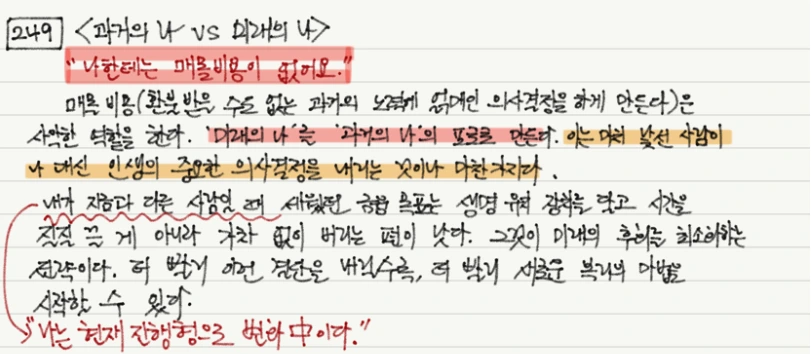 249 <과거의 나 VS 미래의 나>
"나한테는 매몰비용이 없어요."
매몰 비용(환불받을 수도 없는 과거의 노력에 얽매인 의사결정을 하게 만든다)은
사악한 역할을 한다. '미래의 나'를 '과거의 나'의 포로로 만든다. 이는 마치 낯선 사람이
나 대신 인생의 중요한 의사결정을 내리는 것이나 마찬가지다.
내가 지금과 다른 사람일 때 세웠던 금융 목표는 생명 유지 장치를 달고 시간을
질질 끌 게 아니라 가차 없이 버리는 편이 낫다. 그것이 미래의 후회를 최소화하는
전략이다. 더 빨리 이런 결단을 내릴수록, 더 빨리 새로운 복리의 마법을
시작할 수 있다.
"나는 현재 진행형으로 변화 中이다."